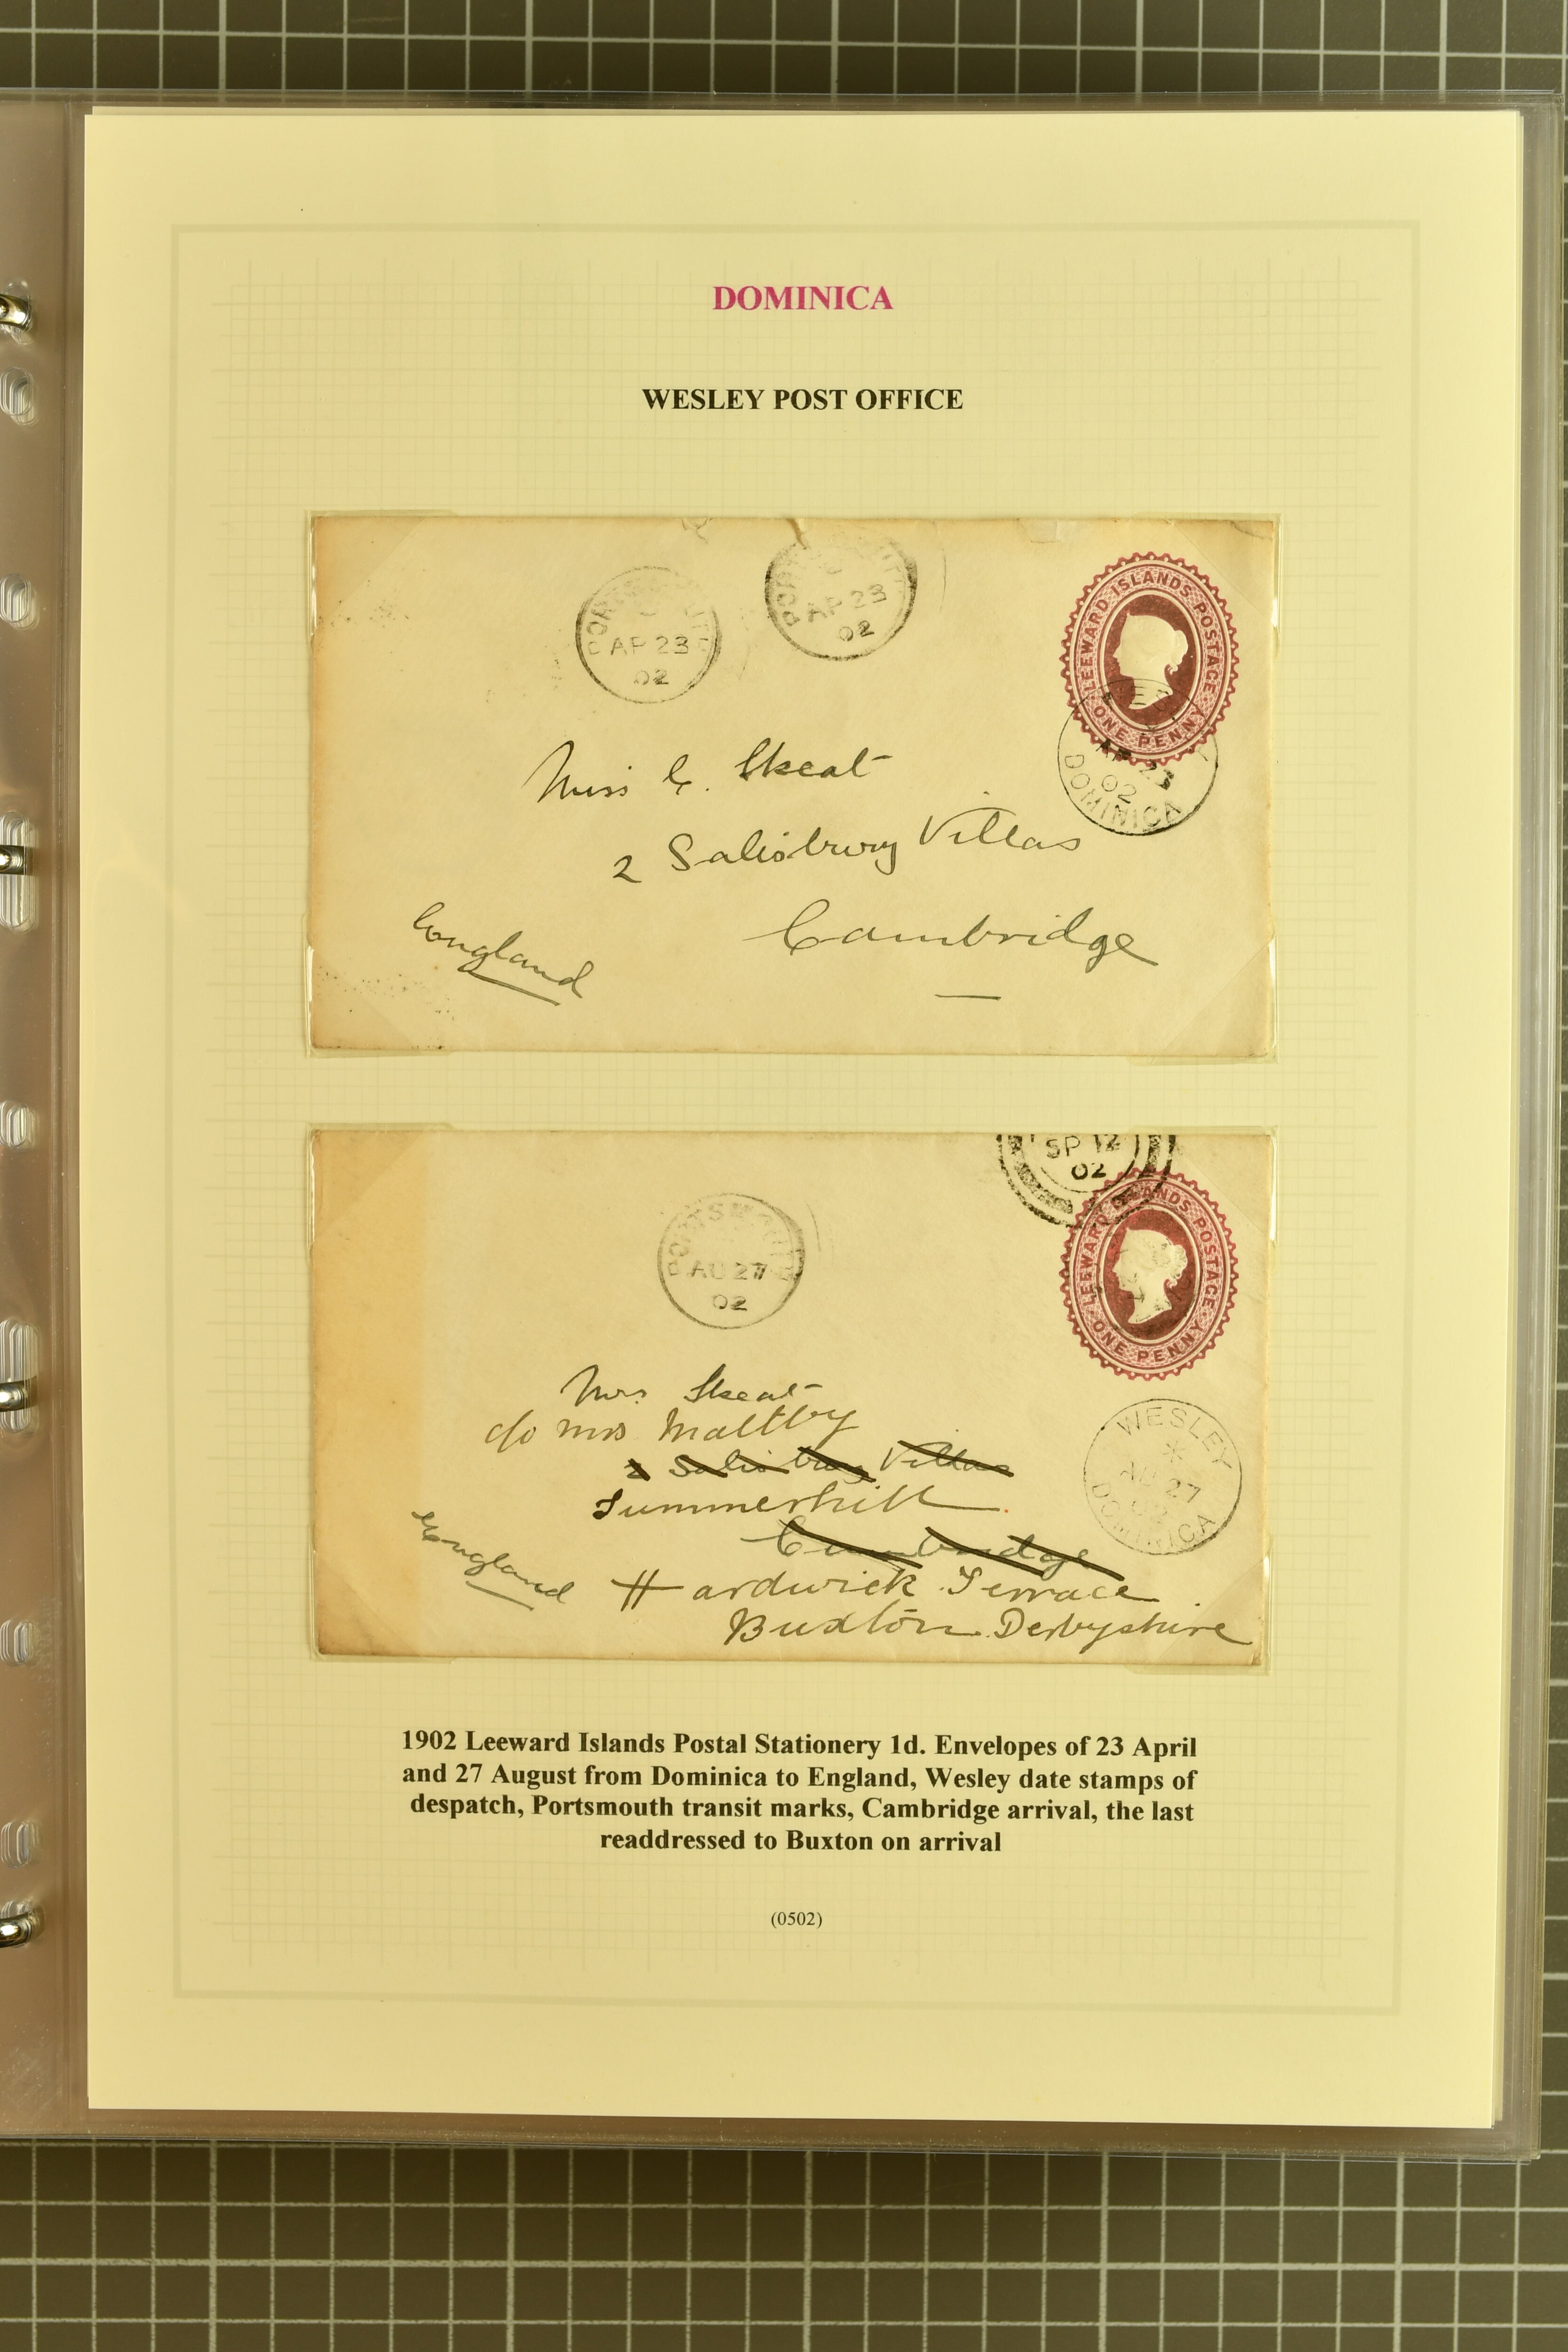 DOMINICA
WESLEY POST OFFICE
PORTSMOUTH
AP 23
02
PORTSMOUTH
AP 23
02
LEEWARD ISLANDS POSTAGE
ONE PENNY
AP 23
02
DOMINICA
Miss C. Skeat
2 Salisbury Villas
Cambridge
England
SP 12
02
LEEWARD ISLANDS POSTAGE
ONE PENNY
PORTSMOUTH
AU 27
02
WESLEY
AU 27
02
DOMINICA
Mrs. Skeat
c/o Mrs Maltby
2 Salisbury Villas
Summerhill
Cambridge
England
Hardwick Terrace
Buxton Derbyshire
1902 Leeward Islands Postal Stationery 1d. Envelopes of 23 April
and 27 August from Dominica to England, Wesley date stamps of
despatch, Portsmouth transit marks, Cambridge arrival, the last
readdressed to Buxton on arrival
(0502)